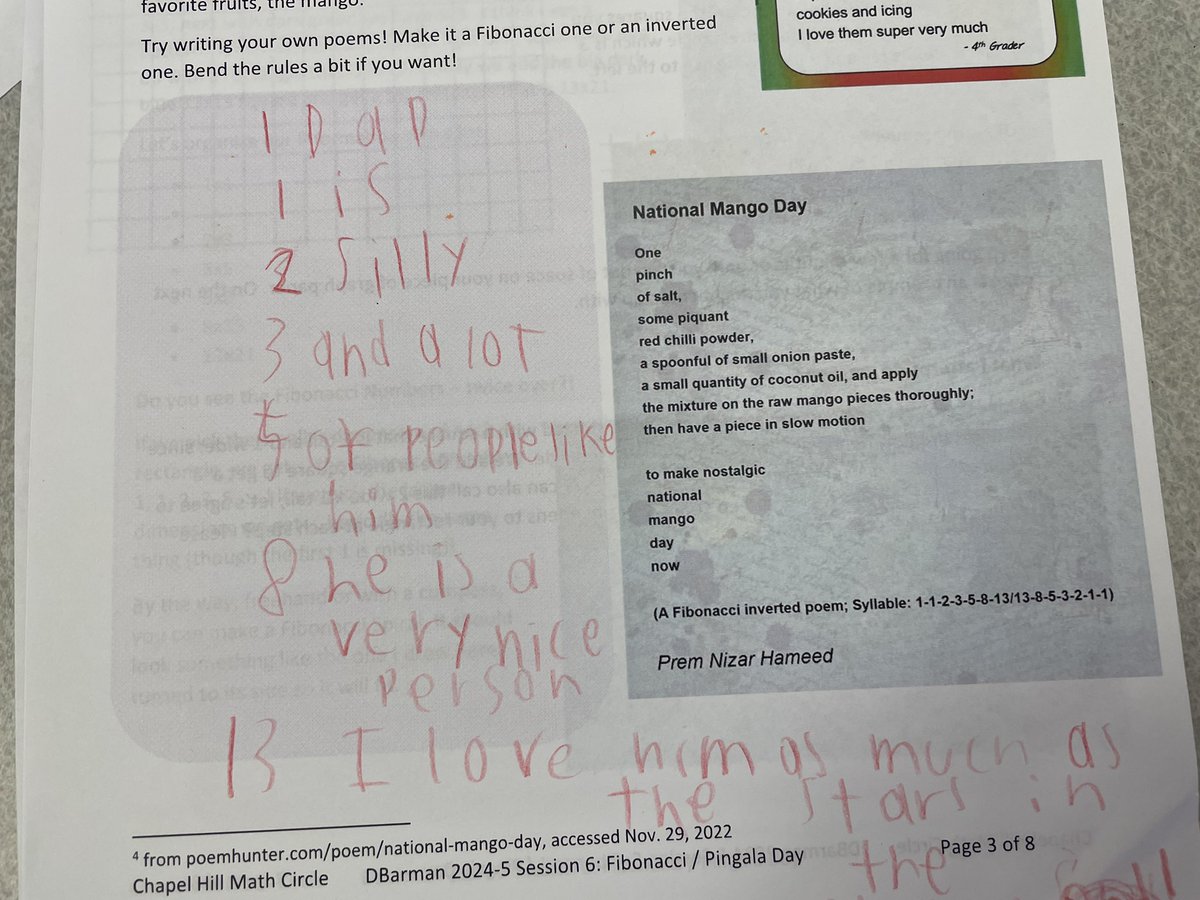 favorite fruits, the mango.
Try writing your own poems! Make it a Fibonacci one or an inverted
one. Bend the rules a bit if you want!
cookies and icing
I love them super very much
- 4th Grader
1 DaD
1 is
2 Silly
3 and a lot
5 of people like
him
8 he is a
very nice
person
13 I love him as much as
the stars in
the
National Mango Day
One
pinch
of salt,
some piquant
red chilli powder,
a spoonful of small onion paste,
a small quantity of coconut oil, and apply
the mixture on the raw mango pieces thoroughly;
then have a piece in slow motion
to make nostalgic
national
mango
day
now
(A Fibonacci inverted poem; Syllable: 1-1-2-3-5-8-13/13-8-5-3-2-1-1)
Prem Nizar Hameed
4 from poemhunter.com/poem/national-mango-day, accessed Nov. 29, 2022
Chapel Hill Math Circle DBarman 2024-5 Session 6: Fibonacci / Pingala Day
Page 3 of 8